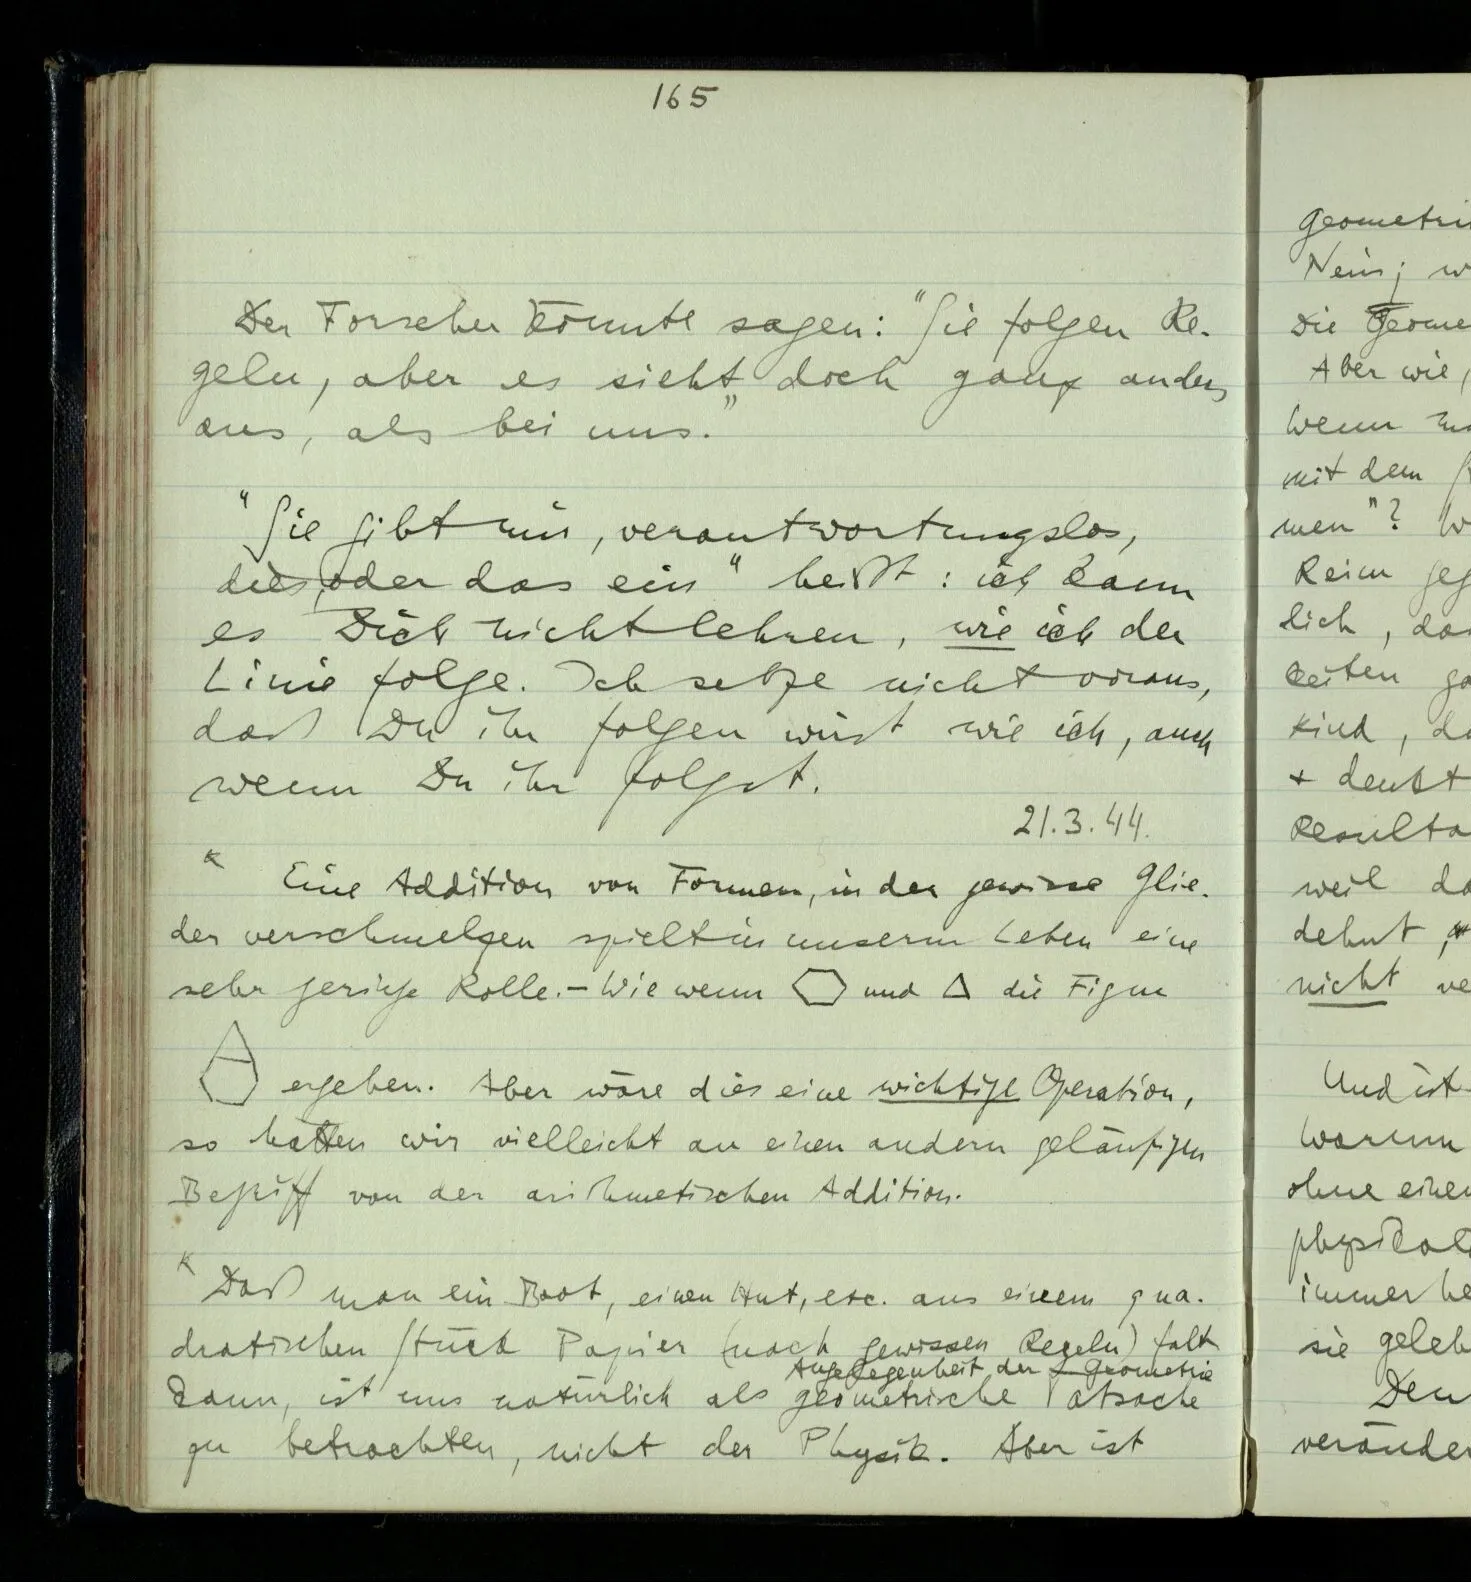 165
Der Forscher könnte sagen: "Sie folgen Re-
geln, aber es sieht doch ganz anders
aus, als bei uns."
"Sie gibt mir, verantwortungslos,
dies, oder das ein" heißt: ich kann
es Dich nicht lehren, wie ich der
Linie folge. Ich setze nicht voraus,
daß Du ihr folgen wirst wie ich, auch
wenn Du ihr folgst.
21.3.44.
Eine Addition von Formen, in der gewisse Glie-
der verschmelzen spielt in unserm Leben eine
sehr geringe Rolle. – Wie wenn und die Figur
ergeben. Aber wäre dies eine wichtige Operation,
so hätten wir vielleicht einen andern geläufigen
Begriff von der arithmetischen Addition.
Daß man ein Boot, einen Hut, etc. aus einem qua-
dratischen Stück Papier (nach gewissen Regeln) falten
Angelegenheit der Geometrie
kann, ist uns natürlich als geometrische Tatsache
zu betrachten, nicht der Physik. Aber ist
Nein; w
Die Geome
Aber wie,
wenn
mit dem
men"? W
Reim geg
lich, das
keiten ga
Kind, da
+ denkt
Resulta
weil da
dehnt,
nicht ve
Und ist
Warum
ohne einen
physikal
immer he
sie geleh
Den
veränder